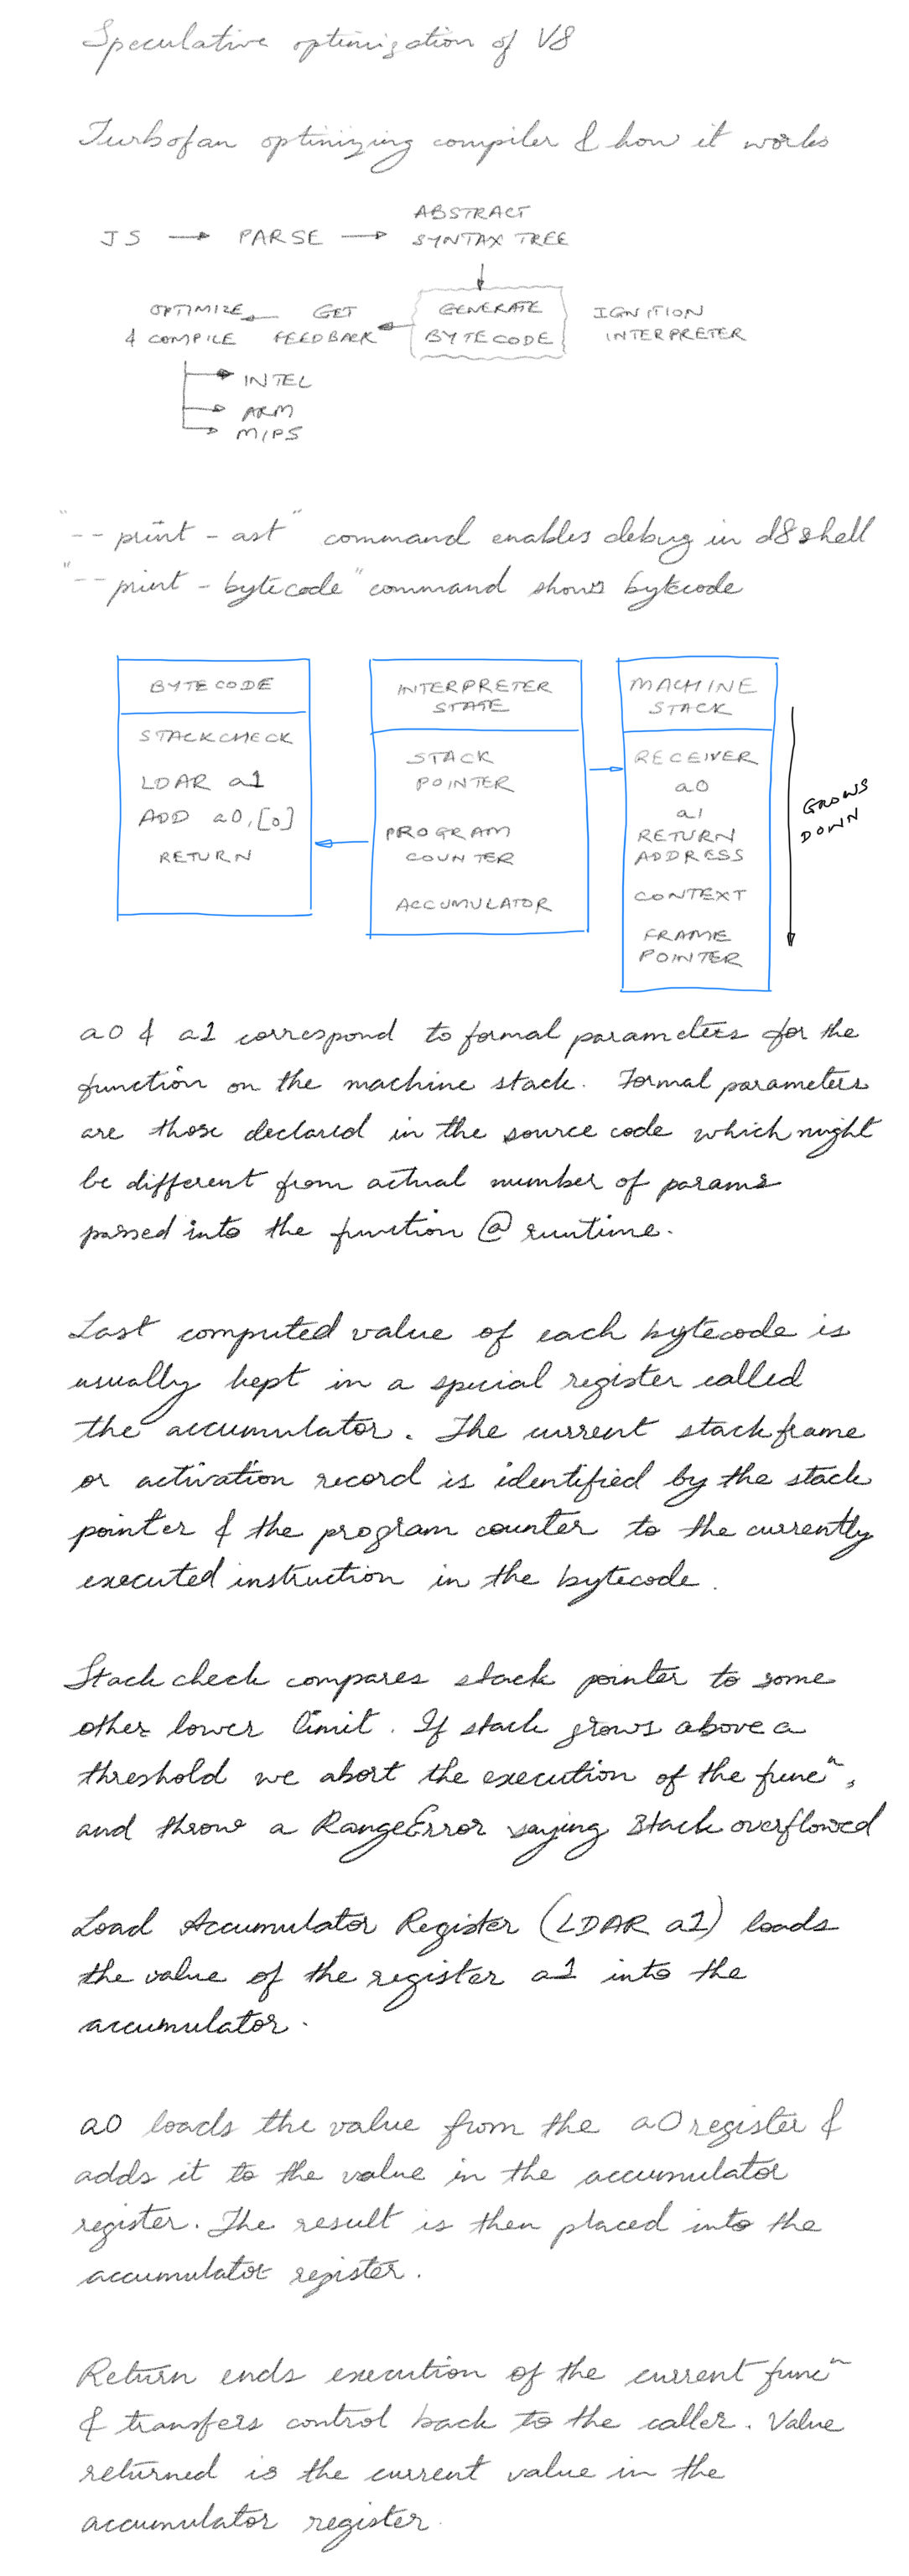 Speculative optimization of V8
Turbofan optimizing compiler & how it works
JS → PARSE → ABSTRACT
SYNTAX TREE
OPTIMIZE
& COMPILE
GET
FEEDBACK
GENERATE
BYTECODE
IGNITION
INTERPRETER
INTEL
ARM
MIPS
"--print-ast" command enables debug in d8 shell
"--print-bytecode" command shows bytecode
BYTECODE
STACKCHECK
LDAR a1
ADD a0,[0]
RETURN
INTERPRETER
STATE
STACK
POINTER
PROGRAM
COUNTER
ACCUMULATOR
MACHINE
STACK
RECEIVER
a0
a1
RETURN
ADDRESS
CONTEXT
FRAME
POINTER
GROWS
DOWN
a0 & a1 correspond to formal parameters for the
function on the machine stack. Formal parameters
are those declared in the source code which might
be different from actual number of params
passed into the function @ runtime.
Last computed value of each bytecode is
usually kept in a special register called
the accumulator. The current stack frame
or activation record is identified by the stack
pointer & the program counter to the currently
executed instruction in the bytecode.
Stack check compares stack pointer to some
other lower limit. If stack grows above a
threshold we abort the execution of the funcⁿ,
and throw a RangeError saying Stack overflowed
Load Accumulator Register (LDAR a1) loads
the value of the register a1 into the
accumulator.
a0 loads the value from the a0 register &
adds it to the value in the accumulator
register. The result is then placed into the
accumulator register.
Return ends execution of the current funcⁿ
& transfers control back to the caller. Value
returned is the current value in the
accumulator register.